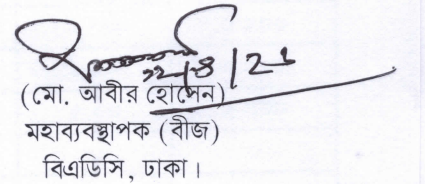 ২২/৪/21
(মো. আবীর হোসেন)
মহাব্যবস্থাপক (বীজ)
বিএডিসি, ঢাকা।